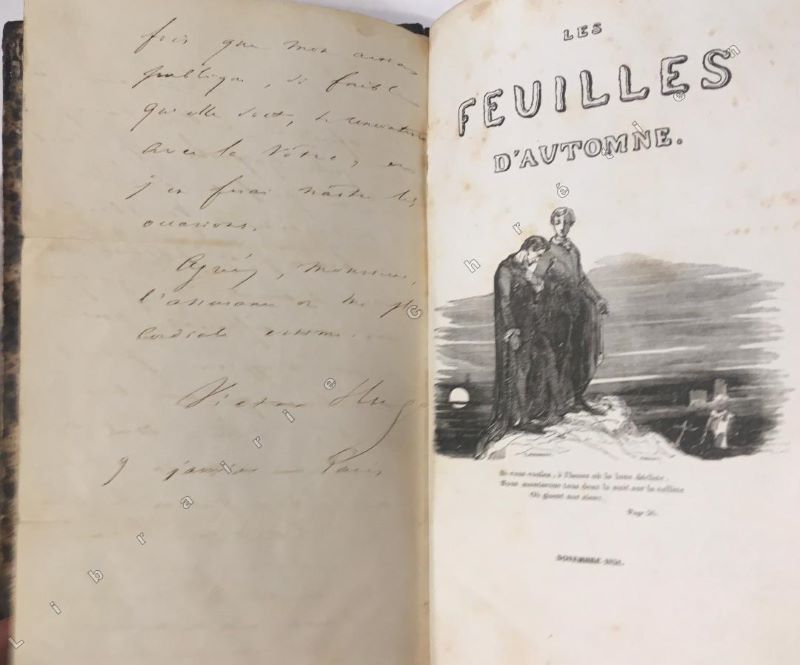 fois que mon
publique, si faible
qu'elle soit, se rencontrera
avec la Vôtre, et
j'en ferai naître les
occasions.
Agréez, monsieur,
l'assurance de ma plus
cordiale estime.
Victor Hugo
9 janvier — Paris
LES
FEUILLES
D'AUTOMNE.
Si vous voulez, à l'heure où la lune décline,
Nous monterons tous deux la nuit sur la colline
Où gisent nos aïeux.
Page 50.
NOVEMBRE 1831.
Librairie Chrétien